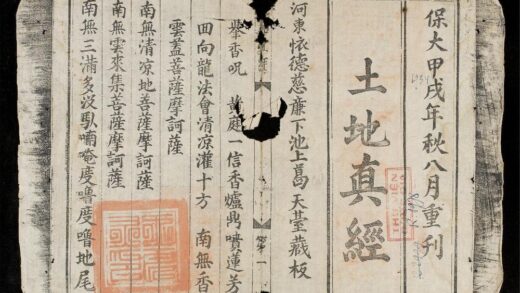 保大甲戌年秋八月重刊
土地真經
河東怀德慈廉下池上葛天臺藏板
第一
舉香呪 黃庭一信香爐鼎噴蓮芳
田向龍法會清凉灌十方 南無香
雲蓋菩薩摩訶薩
南無清凉地菩薩摩訶薩
南無雲來集菩薩摩訶薩
南無三滿多没馱喃唵度嚕度嚕地尾